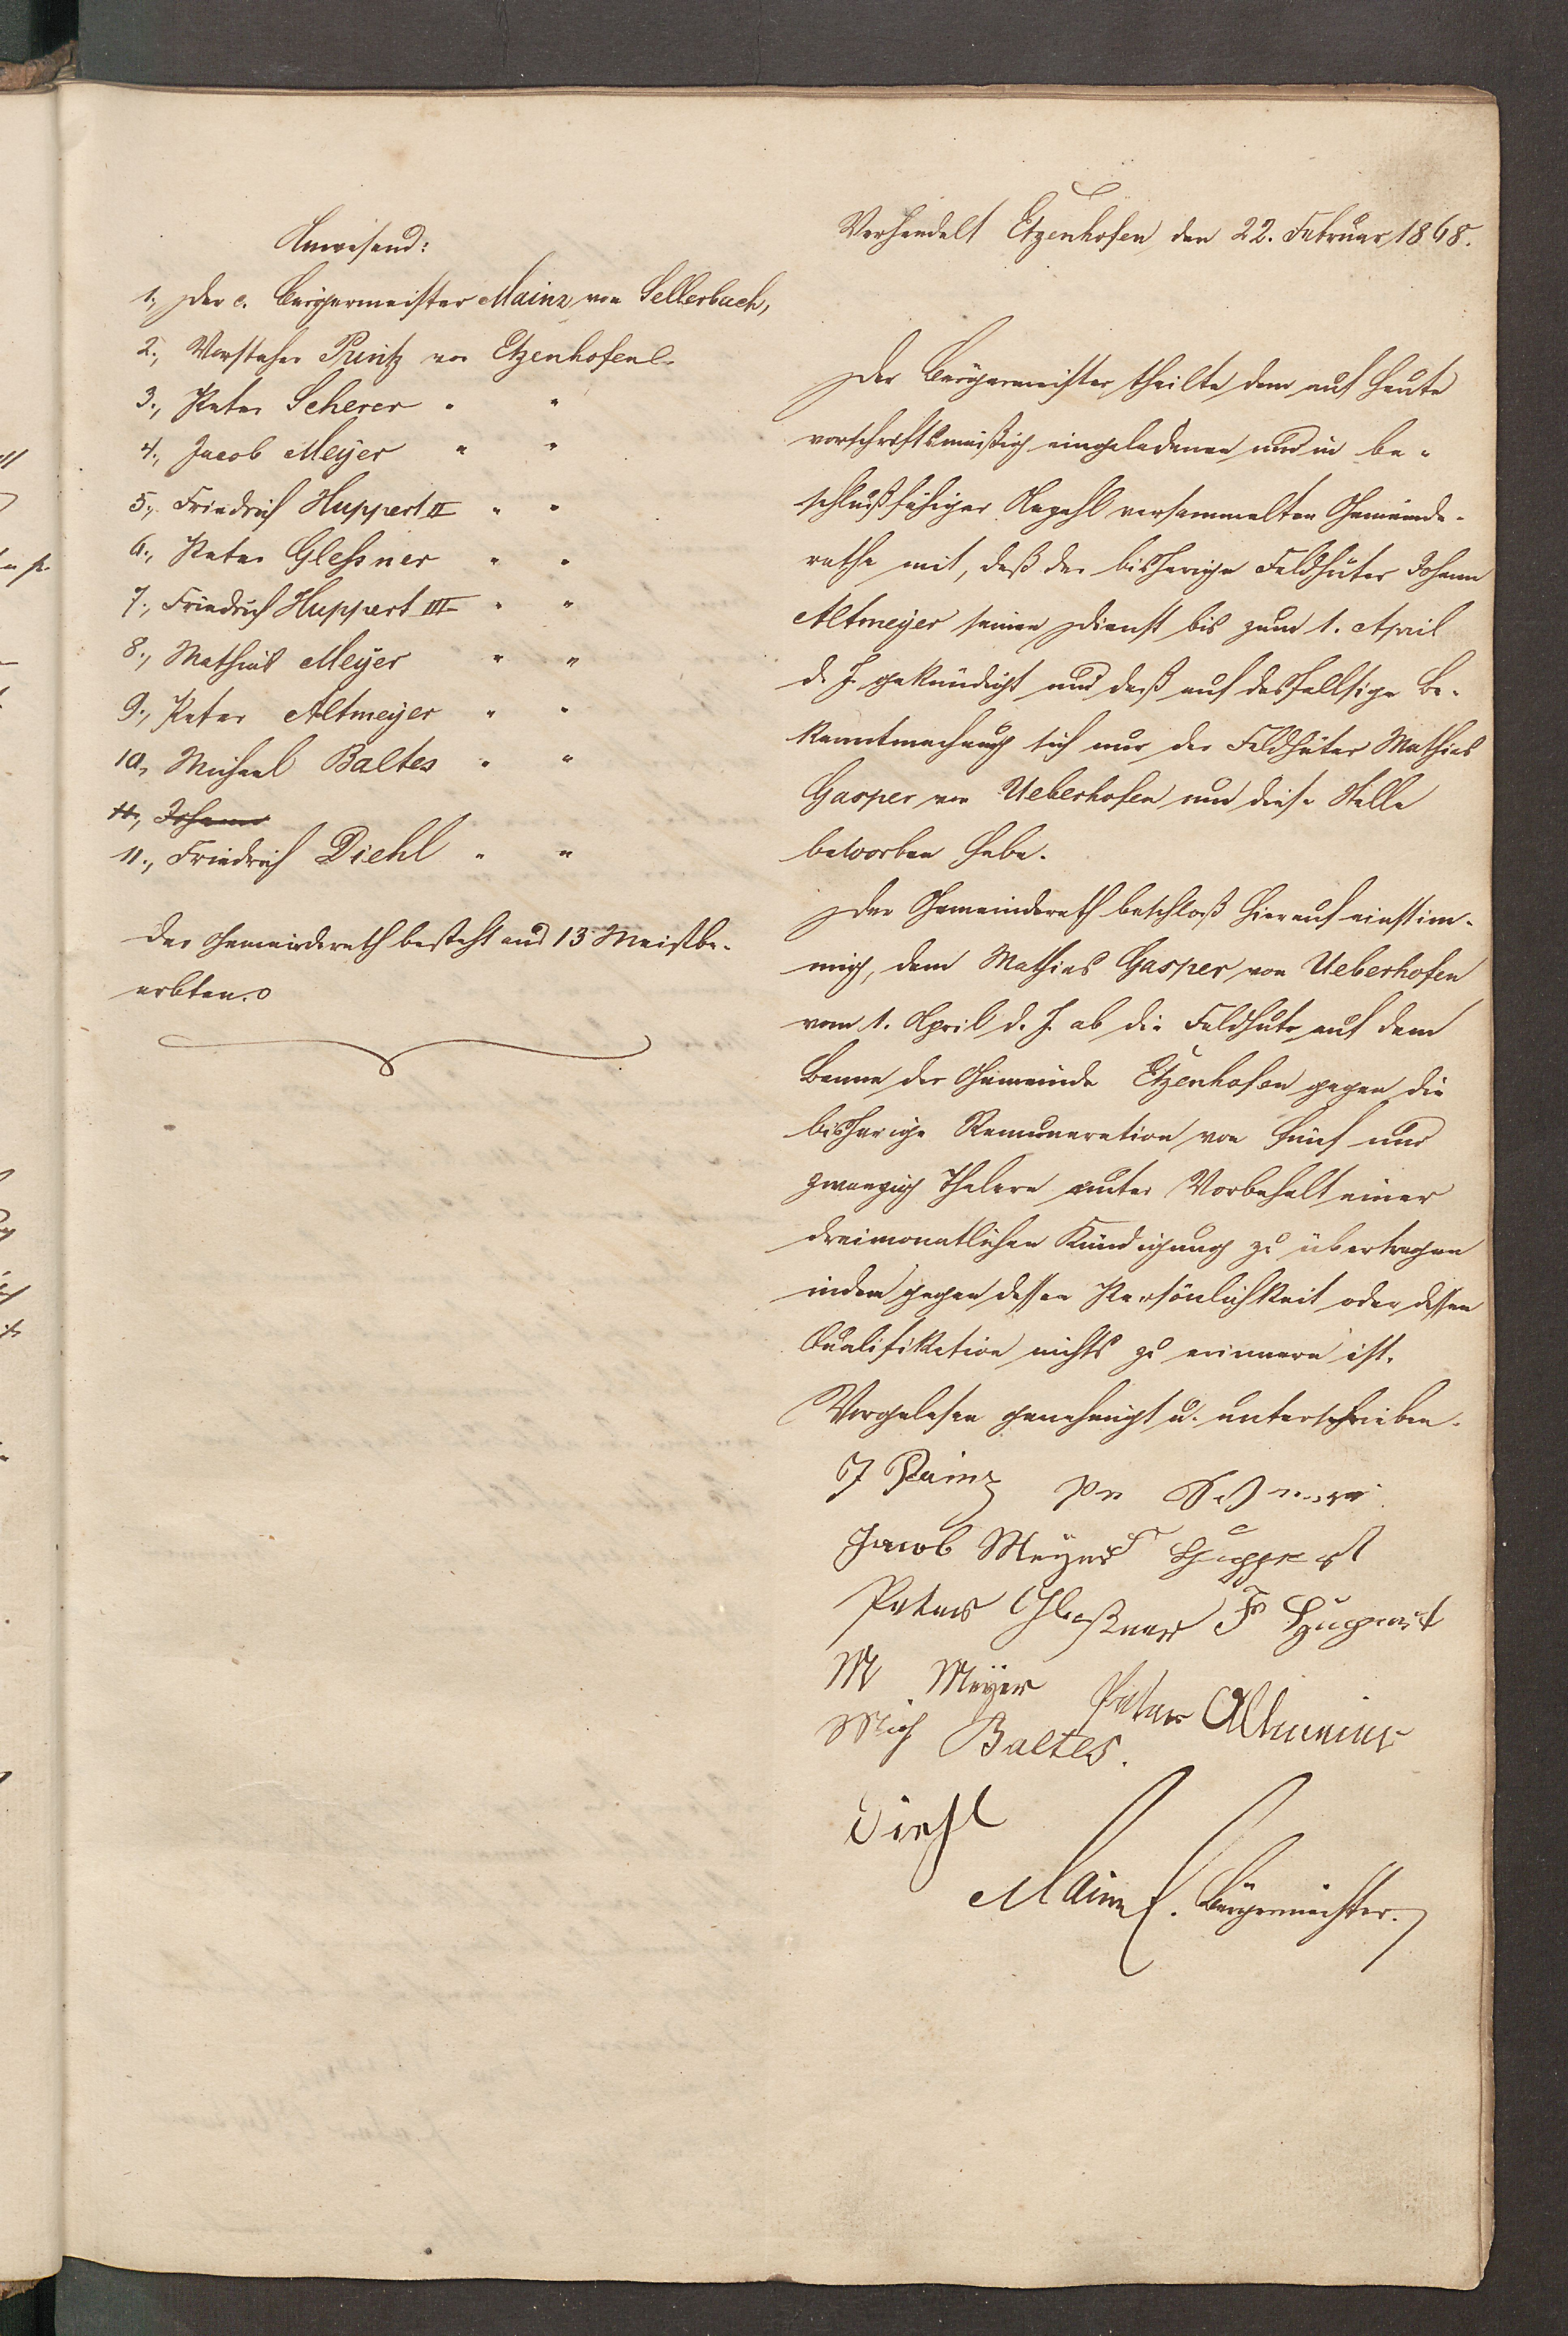 Anwesend:
1., Der c. Bürgermeister Mainz von Sellerbach,
2., Vorsteher Printz von Etzenhofen
3., Peter Scherer " "
4., Jacob Meyer " "
5., Friedrich Huppert II " "
6., Peter Gleßner " "
7., Friedrich Huppert III " "
8., Mathias Meyer " "
9., Peter Altmeyer " "
10., Michael Baltes " "
11., Johann
11., Friedrich Diehl " "
Der Gemeinderath besteht aus 13 Meistbe-
erbten.
Verhandelt Etzenhofen den 22. Februar 1868.
Der Bürgermeister theilte dem auf heute
vorschriftsmäßig eingeladenen und in be-
schlußfähiger Anzahl versammelten Gemeinde-
rathe mit, daß der bisherige Feldhüter Johann
Altmeyer seinen Dienst bis zum 1. April
d. J. gekündigt und daß auf desfallsige Be-
kanntmachung sich nur der Feldhüter Mathias
Gasper von Ueberhofen um diese Stelle
beworben habe.
Der Gemeinderath beschloß hierauf einstim-
mig, dem Mathias Gasper von Ueberhofen
vom 1. April d. J. ab die Feldhut auf dem
Banne der Gemeinde Etzenhofen gegen die
bisherige Remuneration von fünf und
zwanzig Thalern unter Vorbehalt einer
dreimonatlichen Kündigung zu übertragen
indem gegen dessen Persönlichkeit oder dessen
Qualifikation nichts zu erinnern ist.
Vorgelesen genehmigt u. unterschrieben.
J
Jacob Meyer F Huppert
Peter Gleßner F Huppert
M Meyer Peter Altmeier
Mich Baltes.
Diehl
Mainz c. Bürgermeister.